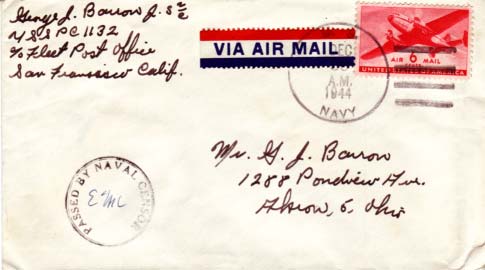 George J. Barrow Jr. S 2/c
U S S PC 1132
c/o Fleet Post Office
San Francisco Calif.
VIA AIR MAIL
DEC
A.M.
1944
NAVY
AIR 6 MAIL
UNITED STATES OF AMERICA
PASSED BY NAVAL CENSOR
Mr. G. J. Barrow
1288 Pondview Ave.
Akron, 5, Ohio